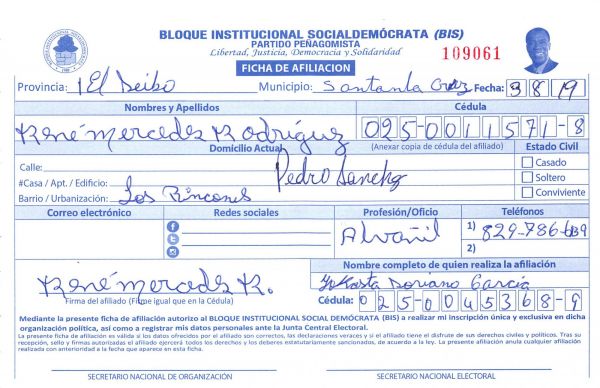 BLOQUE INSTITUCIONAL SOCIALDEMÓCRATA (BIS)
PARTIDO PEÑAGOMISTA
Libertad, Justicia, Democracia y Solidaridad
109061
FICHA DE AFILIACION
Provincia: El Seibo Municipio: Santa Cruz Fecha: 3 8 19
Nombres y Apellidos Cédula
René Mercedes Rodríguez 025-0011571-8
Domicilio Actual (Anexar copia de cédula del afiliado) Estado Civil
Calle: Pedro Sanchz Casado
#Casa / Apt. / Edificio: Soltero
Barrio / Urbanización: Los Rincones Conviviente
Correo electrónico Redes sociales Profesión/Oficio Teléfonos
Alvañil 1) 829-786-
2)
Nombre completo de quien realiza la afiliación
René Mercedes R. Soriano García
Firma del afiliado (Firme igual que en la Cédula) Cédula: 025-0045368-9
Mediante la presente ficha de afiliación autorizo al BLOQUE INSTITUCIONAL SOCIAL DEMÓCRATA (BIS) a realizar mi inscripción única y exclusiva en dicha
organización política, así como a registrar mis datos personales ante la Junta Central Electoral.
La presente ficha de afiliación es válida si los datos ofrecidos por el afiliado son correctos, las declaraciones veraces y si el afiliado tiene el disfrute de sus derechos civiles y políticos. Tras su
recepción, sello y firmas autorizadas el afiliado ejercerá todos los derechos y los deberes estatutariamente sancionados, de acuerdo a la ley. La presente afiliación anula cualquier afiliación
realizada con anterioridad a la fecha que aparece en esta ficha.
SECRETARIO NACIONAL DE ORGANIZACIÓN SECRETARIO NACIONAL ELECTORAL